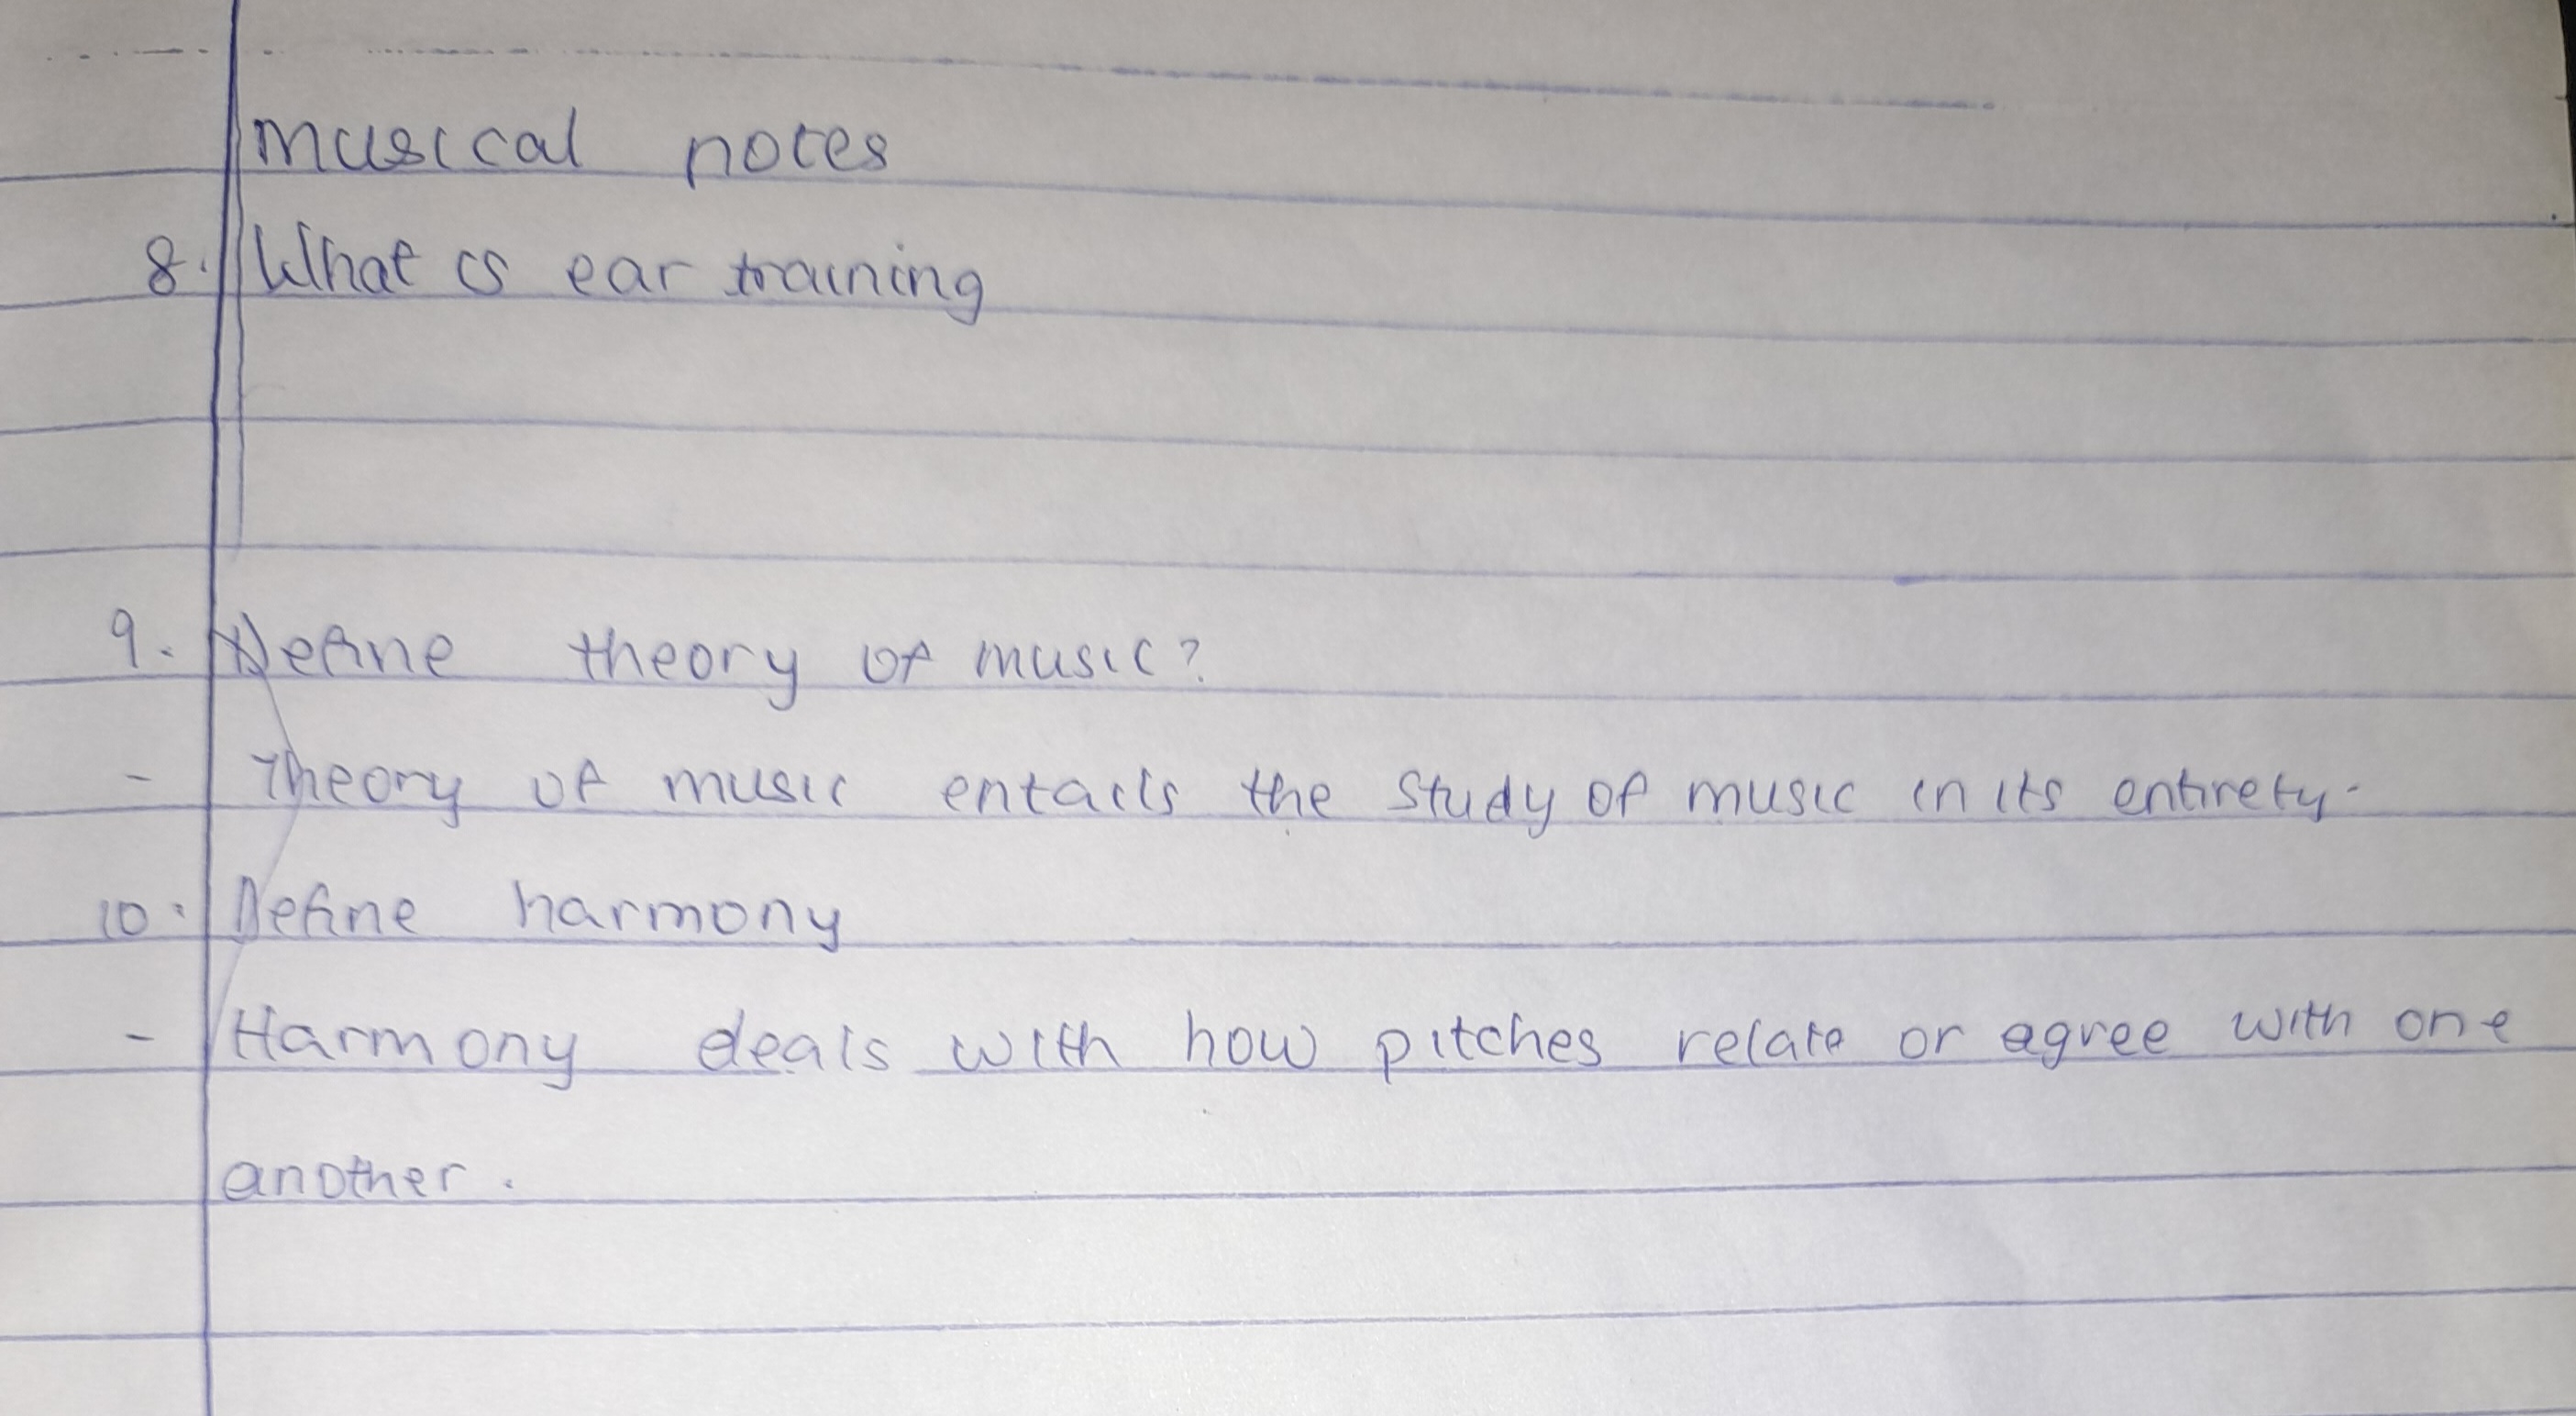 musical notes
8. What is ear training
9. Define theory of music?
- Theory of music entails the study of music in its entirety.
10. Define harmony
- Harmony deals with how pitches relate or agree with one
another.